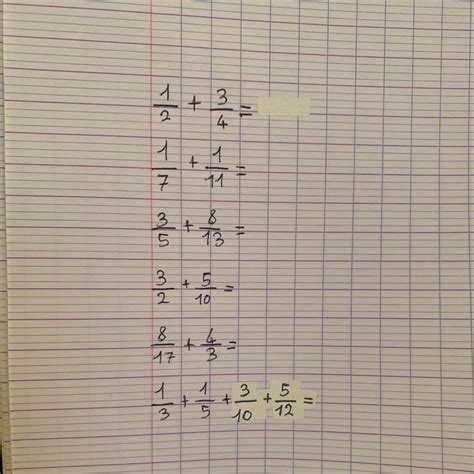 1/2 + 3/4 =
1/7 + 1/11 =
3/5 + 8/13 =
3/2 + 5/10 =
8/17 + 4/3 =
1/3 + 1/5 + 3/10 + 5/12 =